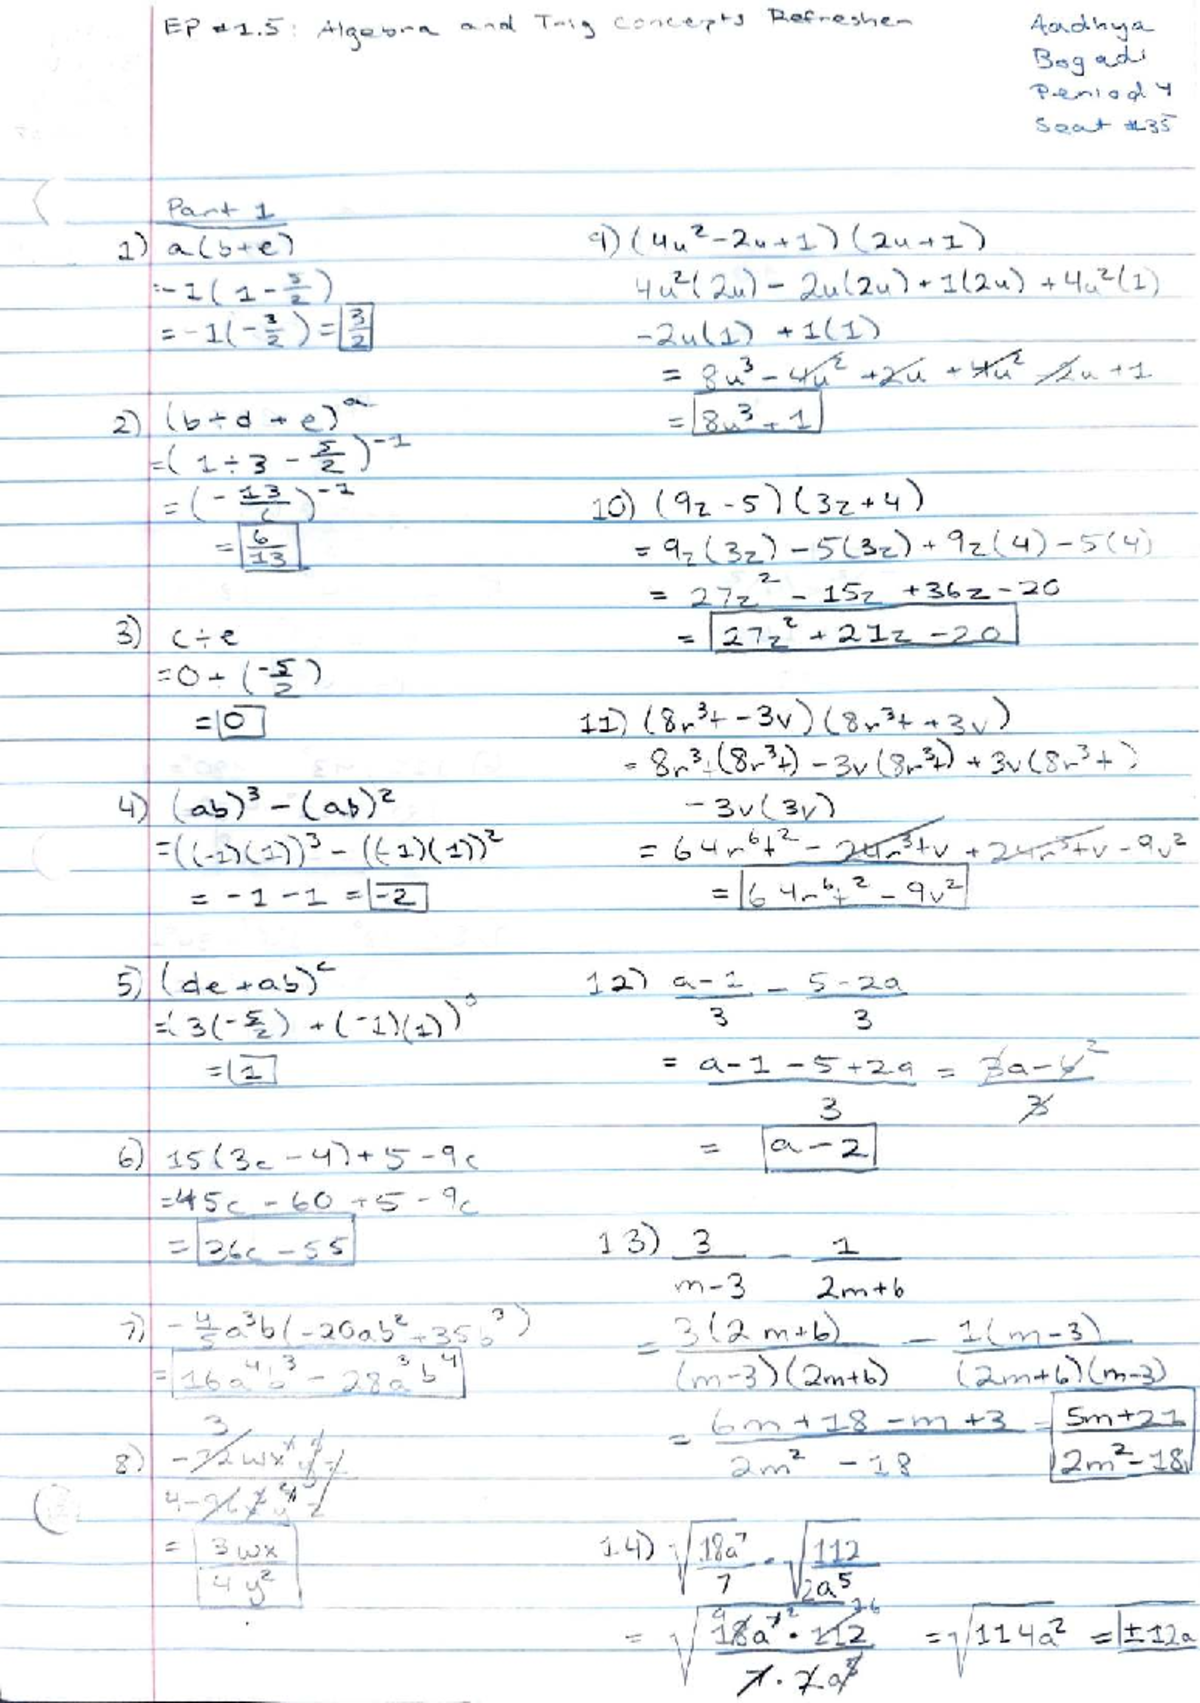 EP #1.5: Algebra and Trig Concepts Refresher
Aadhya
Bogadi
Period 4
Seat #35
Part 1
1) a(b+e)
=-1(1-5/2)
=-1(-3/2)=3/2
2) (b÷d+e)^a
=(1÷3-5/2)^-1
=(-13/6)^-1
=6/13
3) c÷e
=0÷(-5/2)
=0
4) (ab)³-(ab)²
=((-1)(1))³-((-1)(1))²
=-1-1=-2
5) (de+ab)^c
=(3(-5/2)+(-1)(1))^0
=1
6) 15(3c-4)+5-9c
=45c-60+5-9c
=26c-55
7) -4/5a³b(-20ab²+35b³)
=16a⁴b³-28a³b⁴
8)
=3wx/4y²
9) (4u²-2u+1)(2u+1)
4u²(2u)-2u(2u)+1(2u)+4u²(1)
-2u(1)+1(1)
=8u³-4u²+2u+4u²-2u+1
=8u³+1
10) (9z-5)(3z+4)
=9z(3z)-5(3z)+9z(4)-5(4)
=27z²-15z+36z-20
=27z²+21z-20
11) (8r³t-3v)(8r³t+3v)
=8r³t(8r³t)-3v(8r³t)+3v(8r³t)
-3v(3v)
=64r⁶t²-24r³tv+24r³tv-9v²
=64r⁶t²-9v²
12) a-1/3 - 5-2a/3
=a-1-5+2a/3 = 3a-6/3 2
=a-2
13) 3/m-3 - 1/2m+6
=3(2m+6)/(m-3)(2m+6) - 1(m-3)/(2m+6)(m-3)
=6m+18-m+3/2m²-18 = 5m+21/2m²-18
14) √18a⁷/7 · √112/2a⁵
=√18a⁷·112/7·2a⁵ 9 2 16 =√114a² =±12a